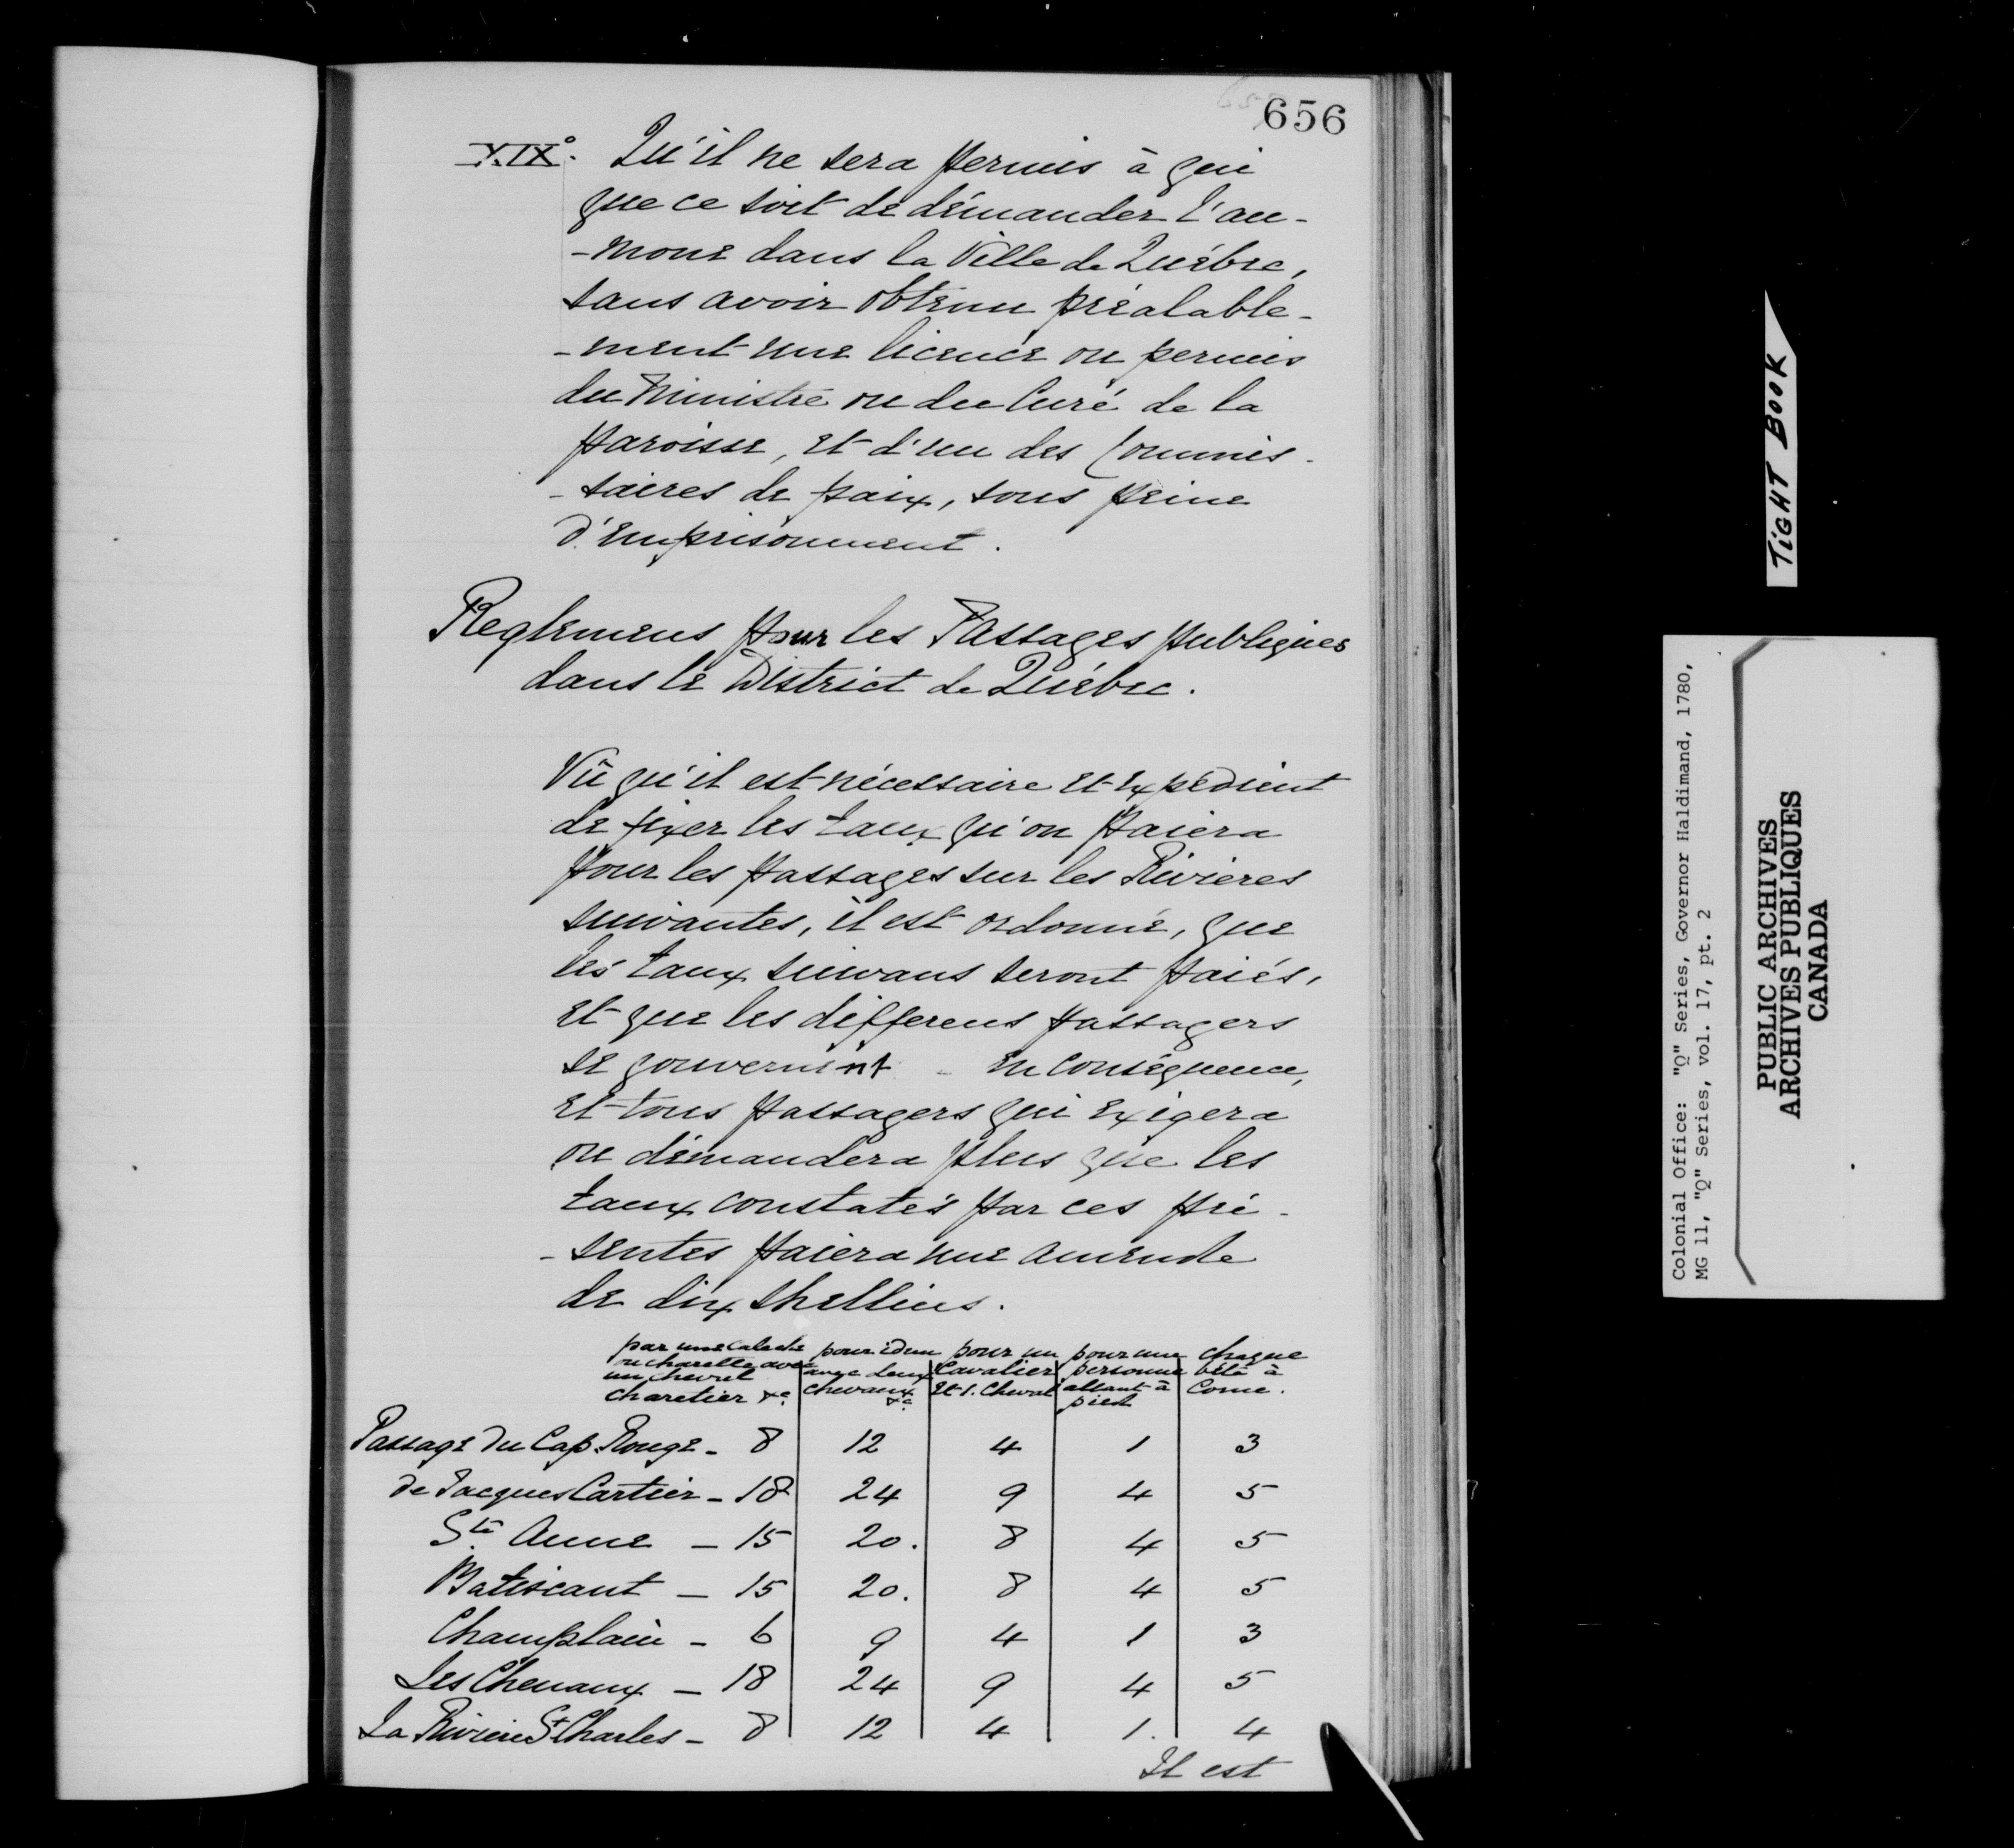 656
XIX°. Qu'il ne sera permis à qui
que ce soit de démander l'au-
-mone dans la Ville de Québec,
sans avoir obtenu préalable-
-ment une licence ou permis
du Ministre ou du Curé de la
paroisse, et d'un des Commis-
-saires de paix, sous peine
d'emprisonnement.
Reglemens pour les Passages publiques
dans le District de Québec.
Vû qu'il est nécessaire et expédient
de fixer les taux qu'on paiera
pour les passages sur les Rivieres
suivantes, il est ordonné, que
les taux suivans seront paiés,
et que les differens passagers
se gouvernent - en conséquence,
et tous passagers qui exigera
ou démandera plus que les
taux constatés par ces pré-
-sentes paiera une amende
de dix shellins.
par une caleche ou charette avec un cheval charetier &c. | pour idem avec deux chevaux &c. | pour un Cavalier et 1. Cheval | pour une personne allant à pied | chaque bête à Corne.
Passage du Cap Rouge - 8 12 4 1 3
de Jacques Cartier - 18 24 9 4 5
Ste Anne - 15 20. 8 4 5
Batiscant - 15 20. 8 4 5
Champlain - 6 9 4 1 3
Les Chenaux - 18 24 9 4 5
La Riviere St Charles - 8 12 4 1. 4
Il est
TIGHT BOOK
Colonial Office: "Q" Series, Governor Haldimand, 1780,
MG 11, "Q" Series, vol. 17, pt. 2
PUBLIC ARCHIVES
ARCHIVES PUBLIQUES
CANADA